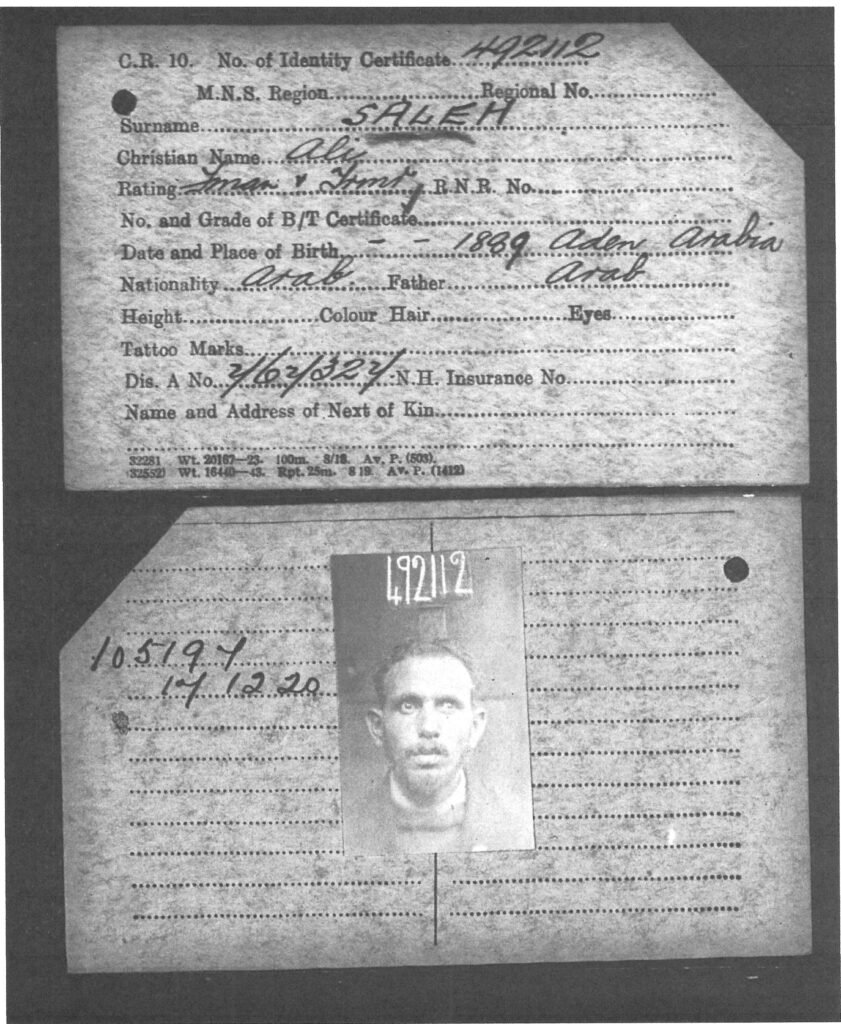 C.R. 10. No. of Identity Certificate 492112
M.N.S. Region Regional No.
Surname SALEH
Christian Name Ali
Rating Fman & Trmr R.N.R. No.
No. and Grade of B/T Certificate
Date and Place of Birth - - 1889 Aden Arabia
Nationality Arab Father Arab
Height Colour Hair Eyes
Tattoo Marks
Dis. A No. N.H. Insurance No.
Name and Address of Next of Kin
32281 Wt. 20167—23. 100m. 8/18. Av. P. (503).
(32552) Wt. 16440—43. Rpt. 25m. 8 19. Av. P. (1412)
492112
105197
17 12 20